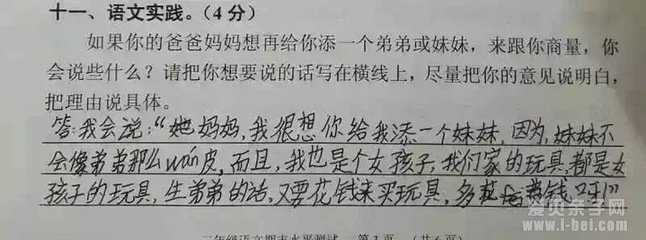 十一、语文实践。(4分)
如果你的爸爸妈妈想再给你添一个弟弟或妹妹，来跟你商量，你
会说些什么？请把你想要说的话写在横线上，尽量把你的意见说明白，
把理由说具体。
答：我会说：“妈妈，我很想你给我添一个妹妹，因为，妹妹不
会像弟弟那么wán皮，而且，我也是个女孩子，我们家的玩具，都是女
孩子的玩具，生弟弟的话，又要花钱来买玩具，多费钱呀！”
二年级语文期末水平测试 第3页 (共6页)
爱贝亲子网
www.i-bei.com